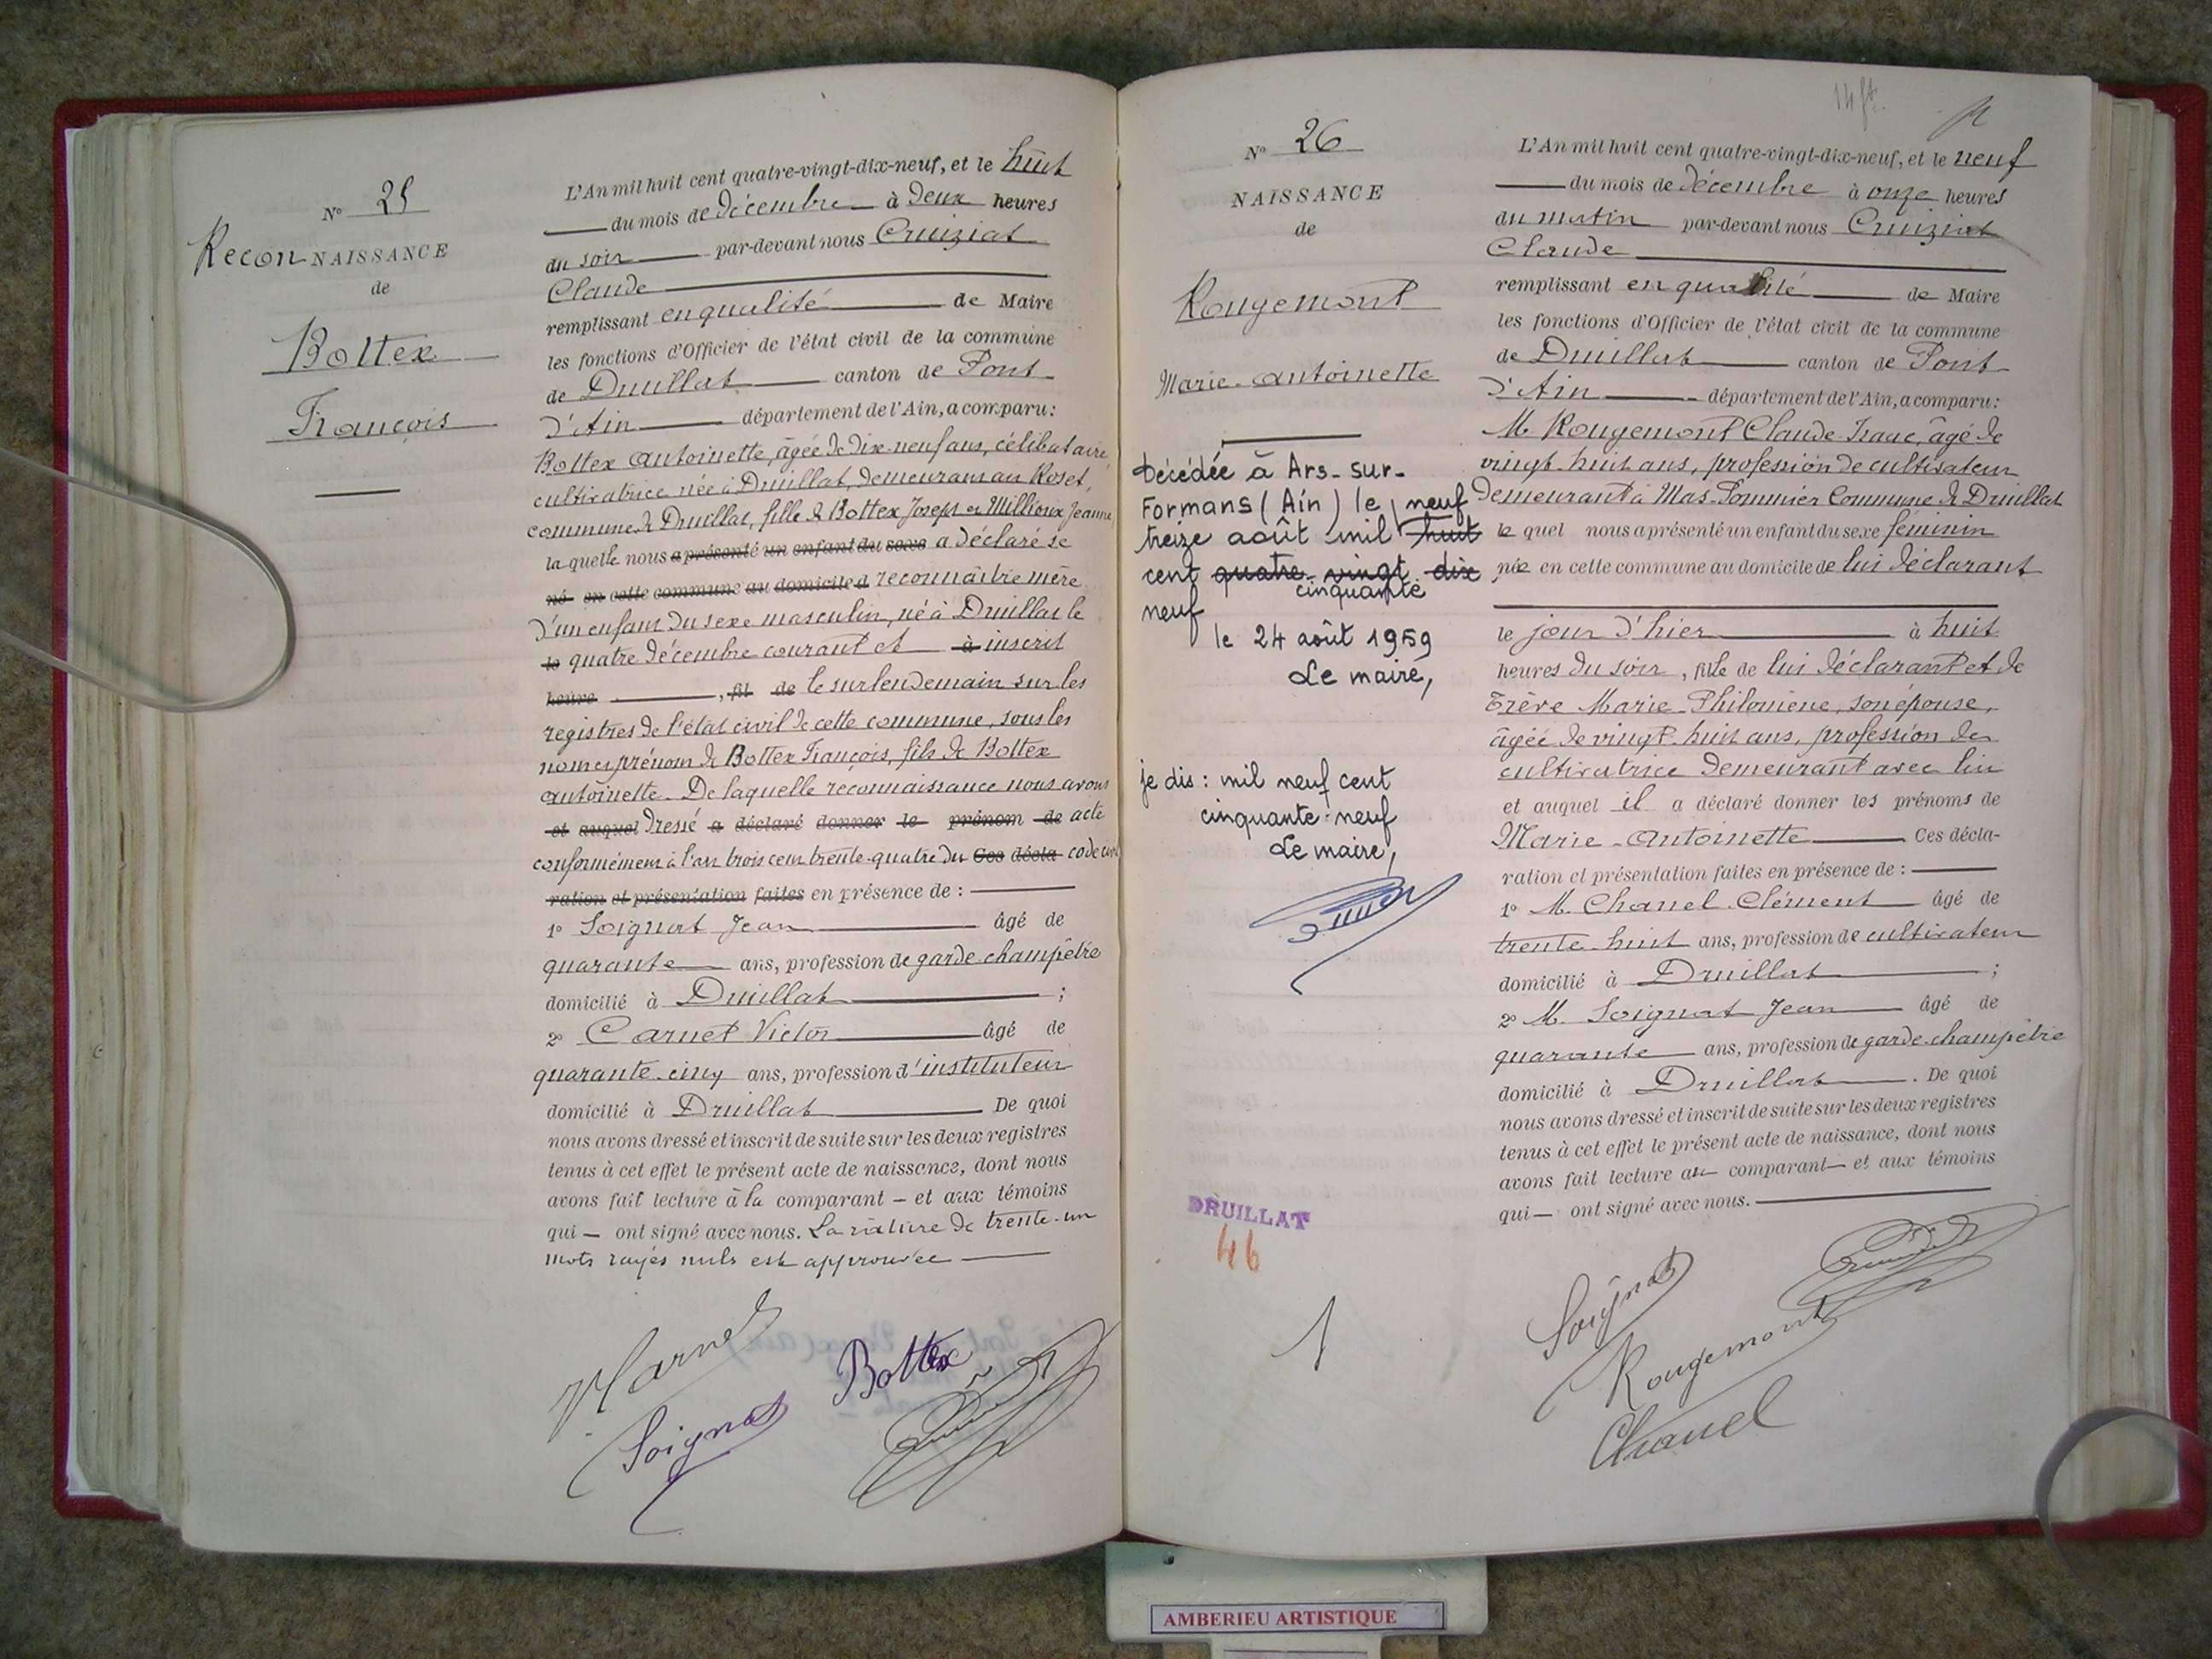 N° 25
ReconNAISSANCE
de
Bottex
François
L'An mil huit cent quatre-vingt-dix-neuf, et le huit
du mois de décembre à deux heures
du soir par-devant nous Cruiziat
Claude
remplissant en qualité de Maire
les fonctions d'Officier de l'état civil de la commune
de Druillat canton de Pont
d'Ain département de l'Ain, a comparu:
Bottex Antoinette, âgée de dix-neuf ans, célibataire,
cultivatrice née à Druillat, demeurant au Roset,
commune de Druillat, fille de Bottex Joseph et Millioux Jeanne
laquelle nous a présenté un enfant du sexe a déclaré se
né en cette commune au domicile d reconnaître mère
d'un enfant du sexe masculin, né à Druillat le
le quatre décembre courant et à inscrit
heure , fil de le surlendemain sur les
registres de l'état civil de cette commune, sous les
nom et prénom de Bottex François, fils de Bottex
Antoinette. De laquelle reconnaissance nous avons
et auquel dressé a déclaré donner le prénom de acte
conformément à l'art trois cent trente-quatre du Ces décla- code civil
ration et présentation faites en présence de :
1° Soignat Jean âgé de
quarante ans, profession de garde-champêtre
domicilié à Druillat ;
2° Carnet Victor âgé de
quarante-cinq ans, profession d'instituteur
domicilié à Druillat De quoi
nous avons dressé et inscrit de suite sur les deux registres
tenus à cet effet le présent acte de naissance, dont nous
avons fait lecture à la comparant – et aux témoins
qui – ont signé avec nous. La rature de trente-un
mots rayés nuls est approuvée
VCarnet
Soignat
Bottex
N° 26
NAISSANCE
de
Rougemont
Marie-Antoinette
Décédée à Ars-sur-
Formans (Ain) le neuf
treize août mil huit
cent quatre vingt dix
cinquante
neuf
le 24 août 1959
Le maire,
je dis : mil neuf cent
cinquante-neuf
Le maire,
DRUILLAT
46
1
14 ft
L'An mil huit cent quatre-vingt-dix-neuf, et le neuf
du mois de décembre à onze heures
du matin par-devant nous Cruiziat
Claude
remplissant en qualité de Maire
les fonctions d'Officier de l'état civil de la commune
de Druillat canton de Pont
d'Ain département de l'Ain, a comparu:
M. Rougemont Claude Isaac, âgé de
vingt-huit ans, profession de cultivateur
demeurant à Mas-Pommier Commune de Druillat
le quel nous a présenté un enfant du sexe féminin
née en cette commune au domicile de lui déclarant
le jour d'hier à huit
heures du soir, fille de lui déclarant et de
Trève Marie-Philomène, son épouse,
âgée de vingt-huit ans, profession de
cultivatrice demeurant avec lui
et auquel il a déclaré donner les prénoms de
Marie-Antoinette Ces décla-
ration et présentation faites en présence de :
1° M. Chanel Clément âgé de
trente-huit ans, profession de cultivateur
domicilié à Druillat ;
2° M. Soignat Jean âgé de
quarante ans, profession de garde-champêtre
domicilié à Druillat. De quoi
nous avons dressé et inscrit de suite sur les deux registres
tenus à cet effet le présent acte de naissance, dont nous
avons fait lecture au comparant – et aux témoins
qui – ont signé avec nous.
Soignat
Rougemont
Chanel
AMBERIEU ARTISTIQUE